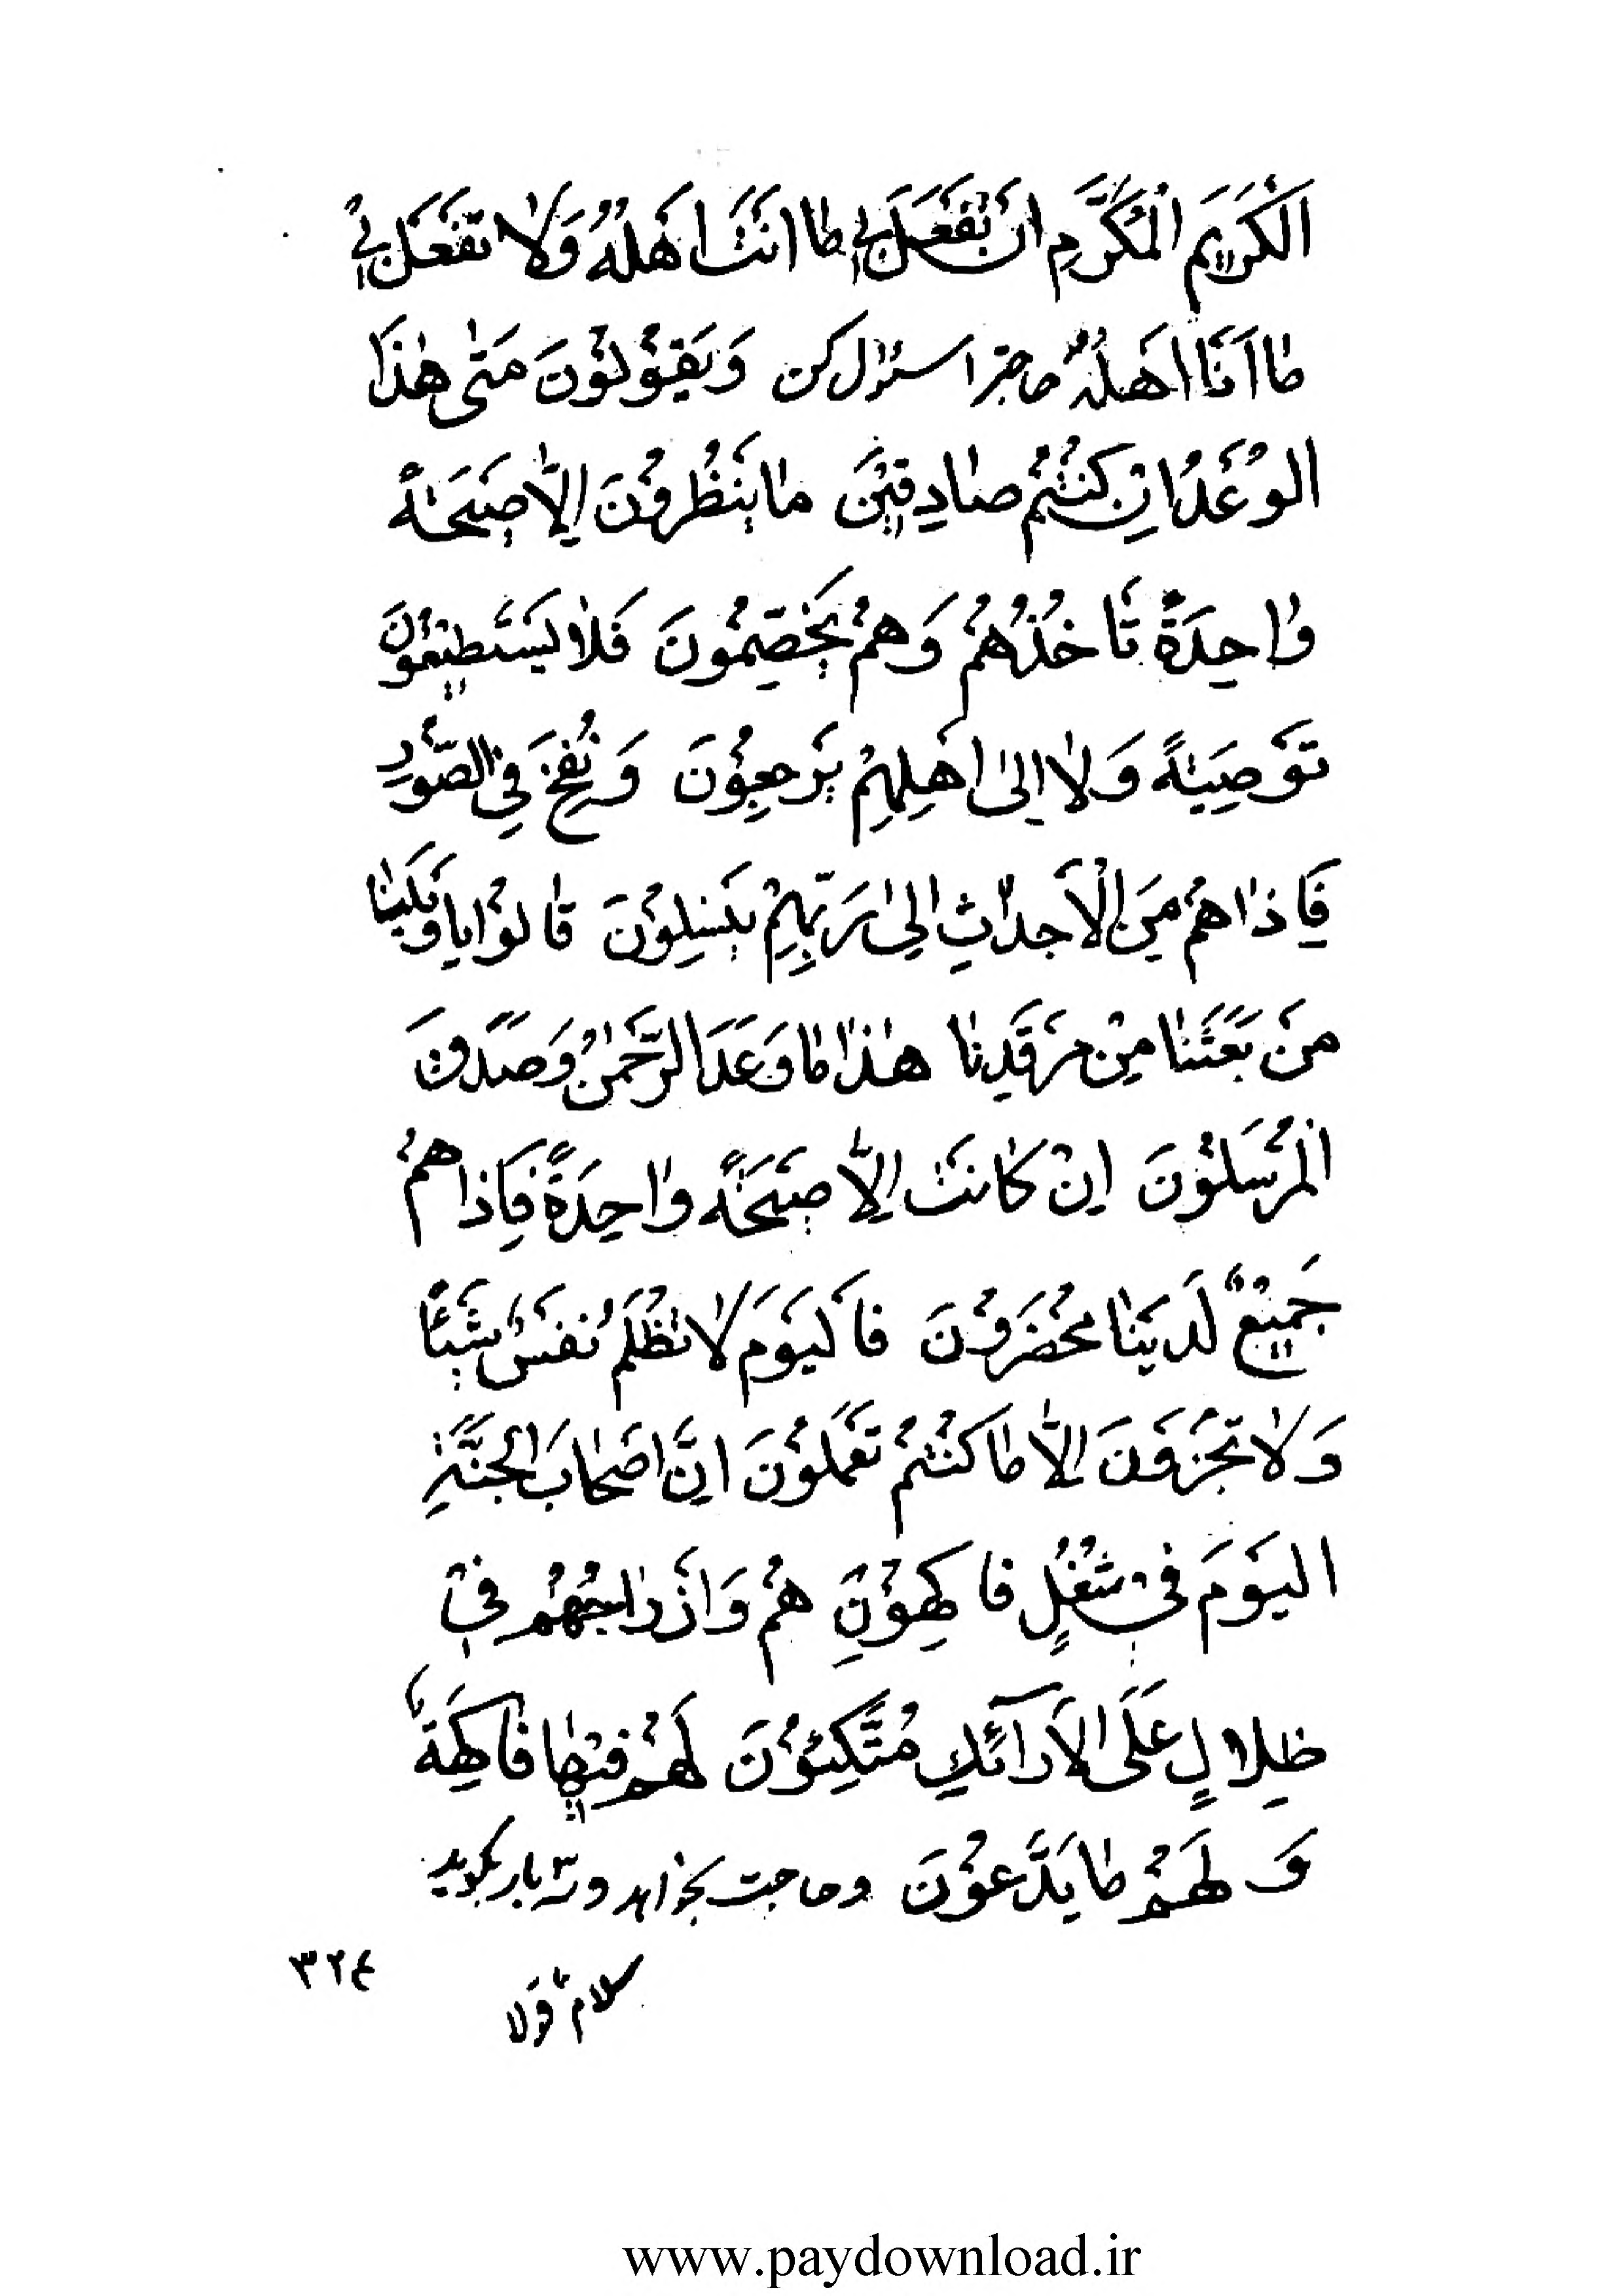 اَلْكَرِيمَ الْمُكَرَّمِ اَنْ تَفْعَلَ بِي مٰا اَنْتَ اَهْلُهُ وَلاٰ تَفْعَلْ بِي
مٰا اَنَا اَهْلُهُ حاجترا سئوال كن وَيَقُولُونَ مَتٰى هٰذَا
الْوَعْدُ اِنْ كُنْتُمْ صٰادِقِينَ مٰا يَنْظُرُونَ اِلاّٰ صَيْحَةً
وٰاحِدَةً تَأْخُذُهُمْ وَهُمْ يَخِصِّمُونَ فَلاٰ يَسْتَطِيعُونَ
تَوْصِيَةً وَلاٰ اِلىٰ اَهْلِهِمْ يَرْجِعُونَ وَنُفِخَ فِي الصُّورِ
فَاِذٰا هُمْ مِنَ الْاَجْدٰاثِ اِلىٰ رَبِّهِمْ يَنْسِلُونَ قٰالُوا يٰا وَيْلَنٰا
مَنْ بَعَثَنٰا مِنْ مَرْقَدِنٰا هٰذٰا مٰا وَعَدَ الرَّحْمٰنُ وَصَدَقَ
الْمُرْسَلُونَ اِنْ كٰانَتْ اِلاّٰ صَيْحَةً وٰاحِدَةً فَاِذٰا هُمْ
جَمِيعٌ لَدَيْنٰا مُحْضَرُونَ فَالْيَوْمَ لاٰ تُظْلَمُ نَفْسٌ شَيْئًا
وَلاٰ تُجْزَوْنَ اِلاّٰ مٰا كُنْتُمْ تَعْمَلُونَ اِنَّ اَصْحٰابَ الْجَنَّةِ
الْيَوْمَ فِي شُغُلٍ فٰاكِهُونَ هُمْ وَاَزْوٰاجُهُمْ فِي
ظِلاٰلٍ عَلَى الْاَرٰآئِكِ مُتَّكِئُونَ لَهُمْ فِيهٰا فٰاكِهَةٌ
وَلَهُمْ مٰا يَدَّعُونَ وحاجت بخواهد وسّه بار بگويد
٣٢٤
سلام قولا
www.paydownload.ir